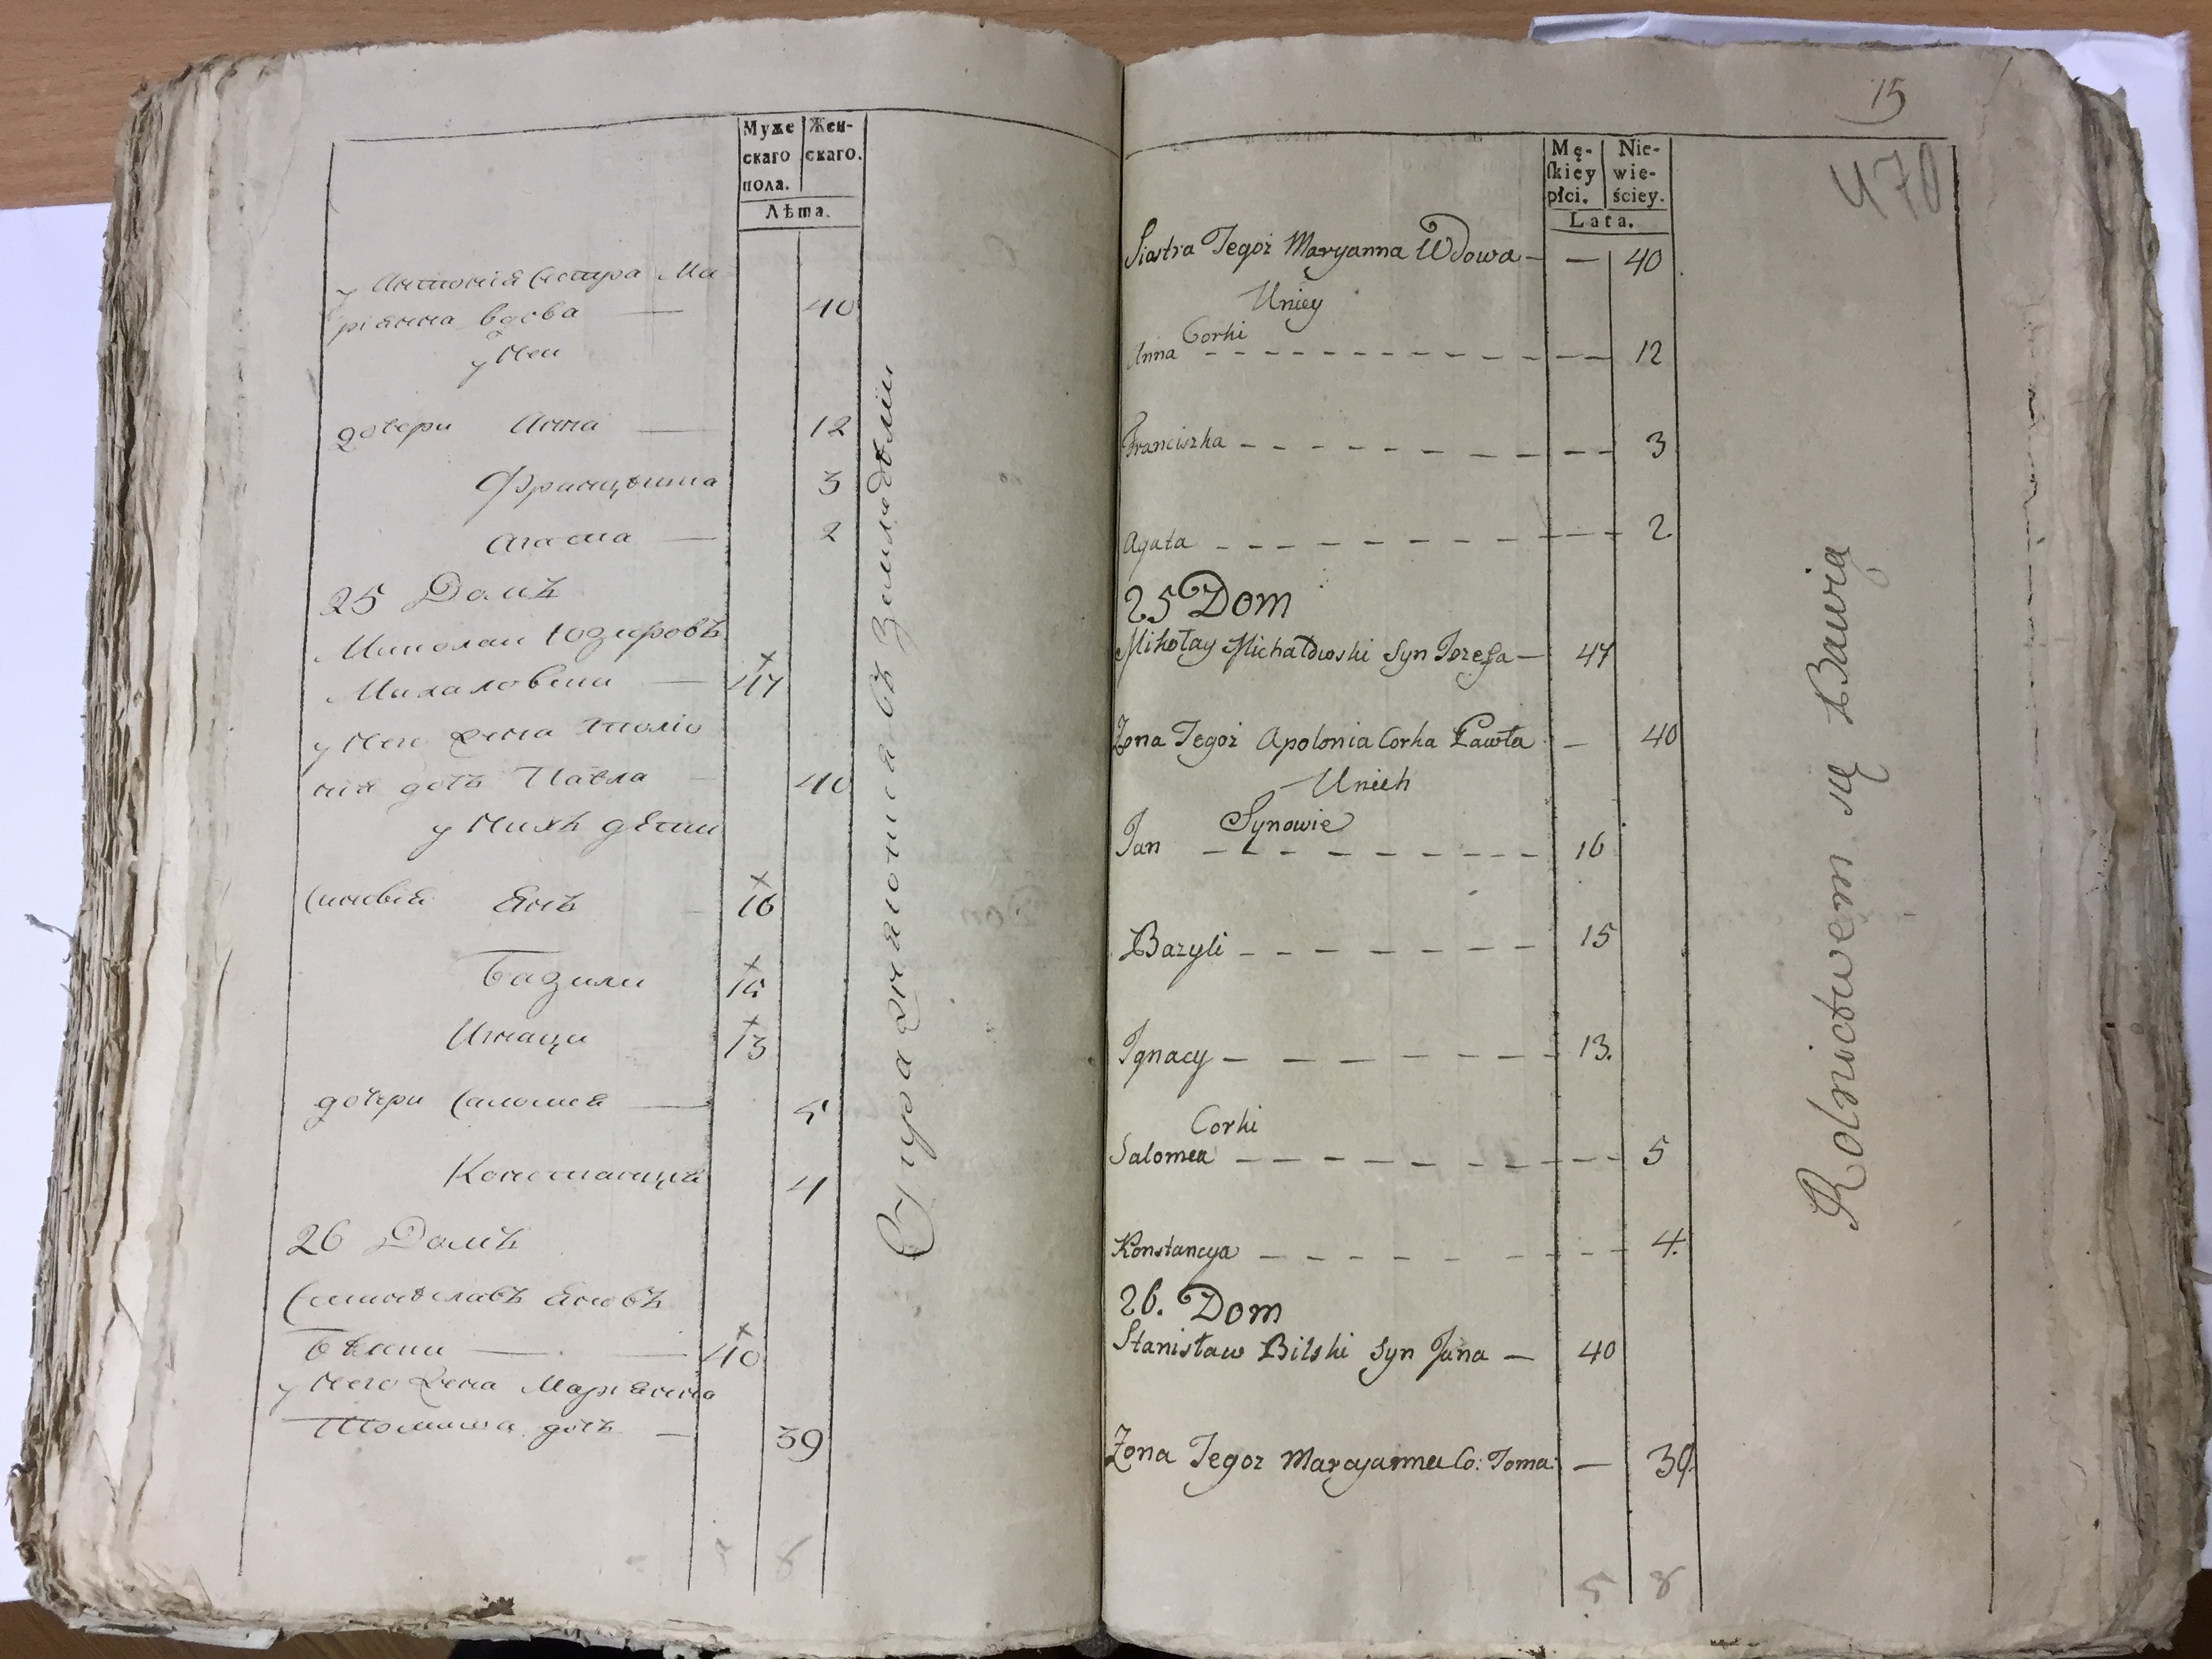 Муже
скаго
пола.
Жен-
скаго.
Лѣта.
у Антонія Сестра Ма
ріянна вдова — 40
у Неи
дочери Анна — 12
Францѣшка 3
Агата — 2
25 Домъ
Миколаи Юзефовъ
Михаловски — 47
у Него Жена Аполіо
нія дочь Павла — 40
у Нихъ дѣти
Синовія Янъ — 16
Базили 15
Игнаци 13
дочери Саломея — 5
Констанція 4
26 Домъ
Станѣславъ Яновъ
Бѣлски — 40
у Него Жена Маріянна
Томаша дочь — 39
упражняются въ Земледѣліи
15
470
Mę-
skiey
płci.
Nie-
wie-
ściey.
Lata.
Siostra Tegoż Maryanna Wdowa — — 40
Uniey
Corki
Anna - - - 12
Franciszka - - - 3
Agata - - - 2
25 Dom
Mikołay Michałowski Syn Jozefa — 47
Żona Tegoż Apolonia Corka Pawła — 40
Unich
Synowie
Jan - - - 16
Bazyli - - - 15
Ignacy - - - 13.
Corki
Salomea - - - 5
Konstancya - - - 4.
26. Dom
Stanisław Bilski Syn Jana — 40
Żona Tegoz Maryanna Co: Toma: — 39
5 8
Rolnictwem się Bawią